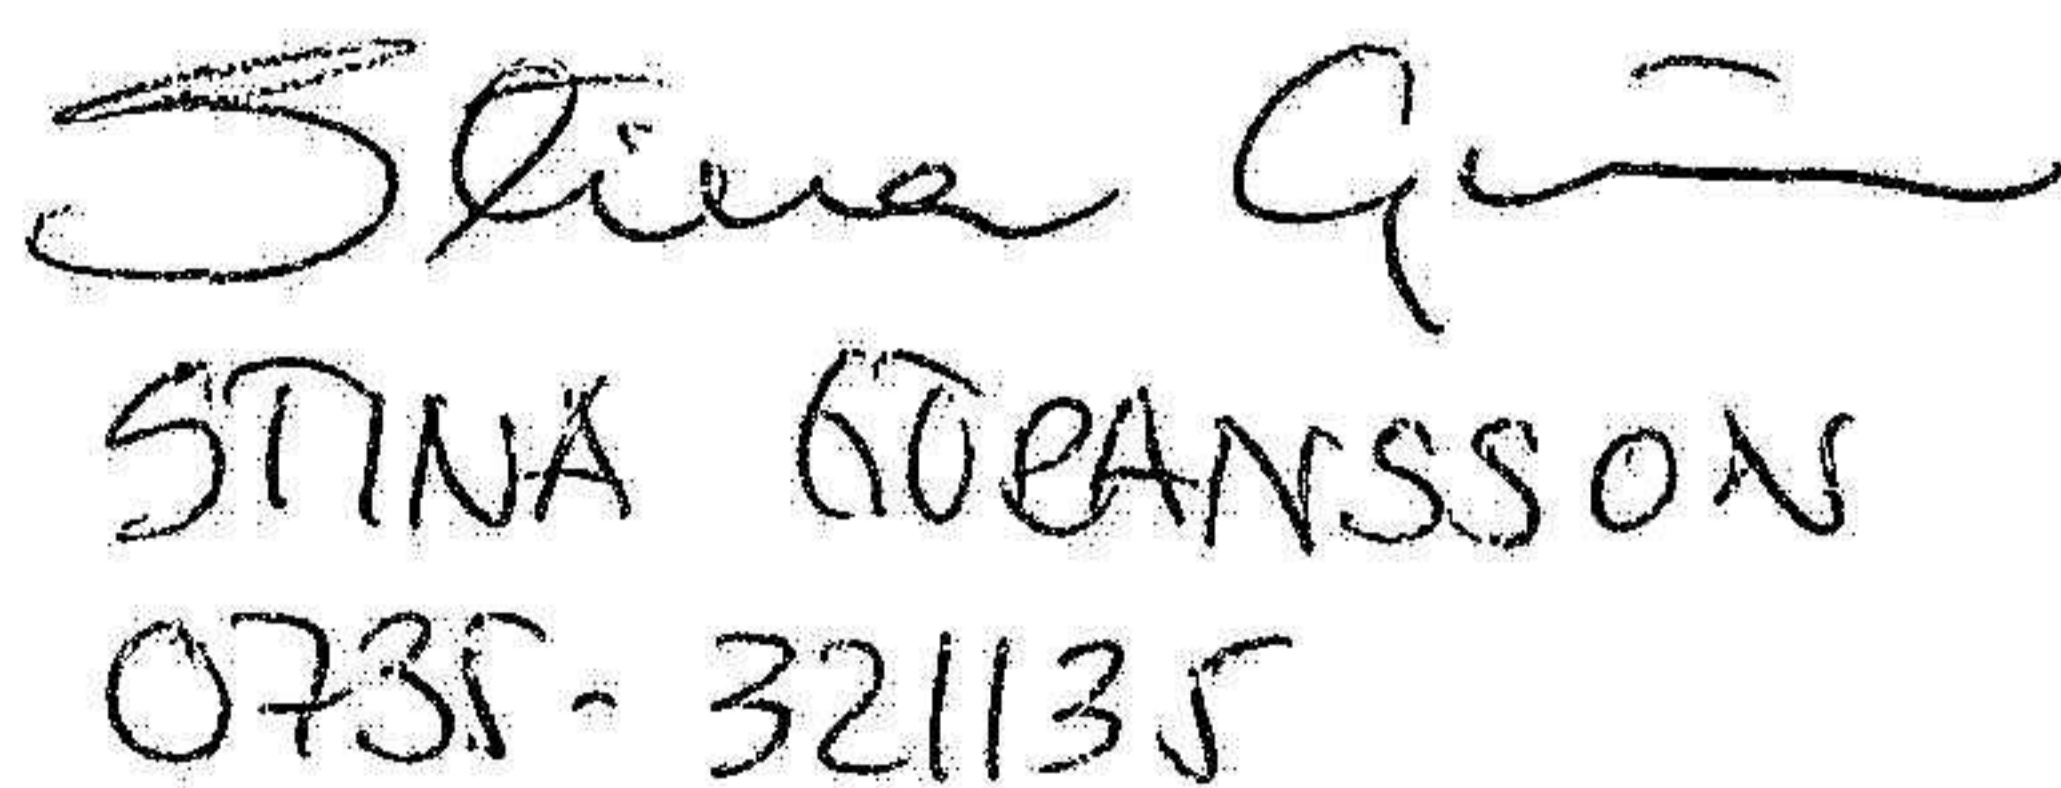 Stina G
STINA GÖRANSSON
0735-321135